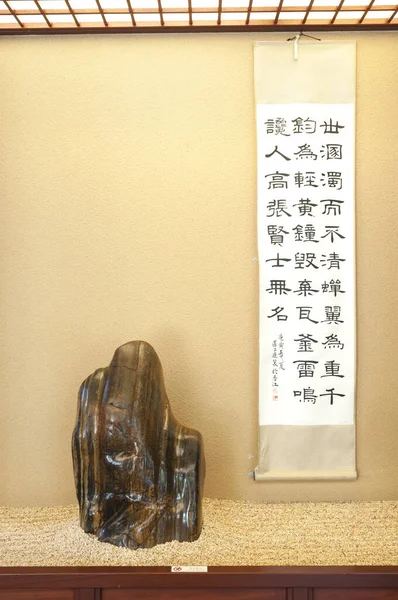 世溷濁而不清蟬翼為重千
鈞為輕黃鐘毀棄瓦釜雷鳴
讒人高張賢士無名